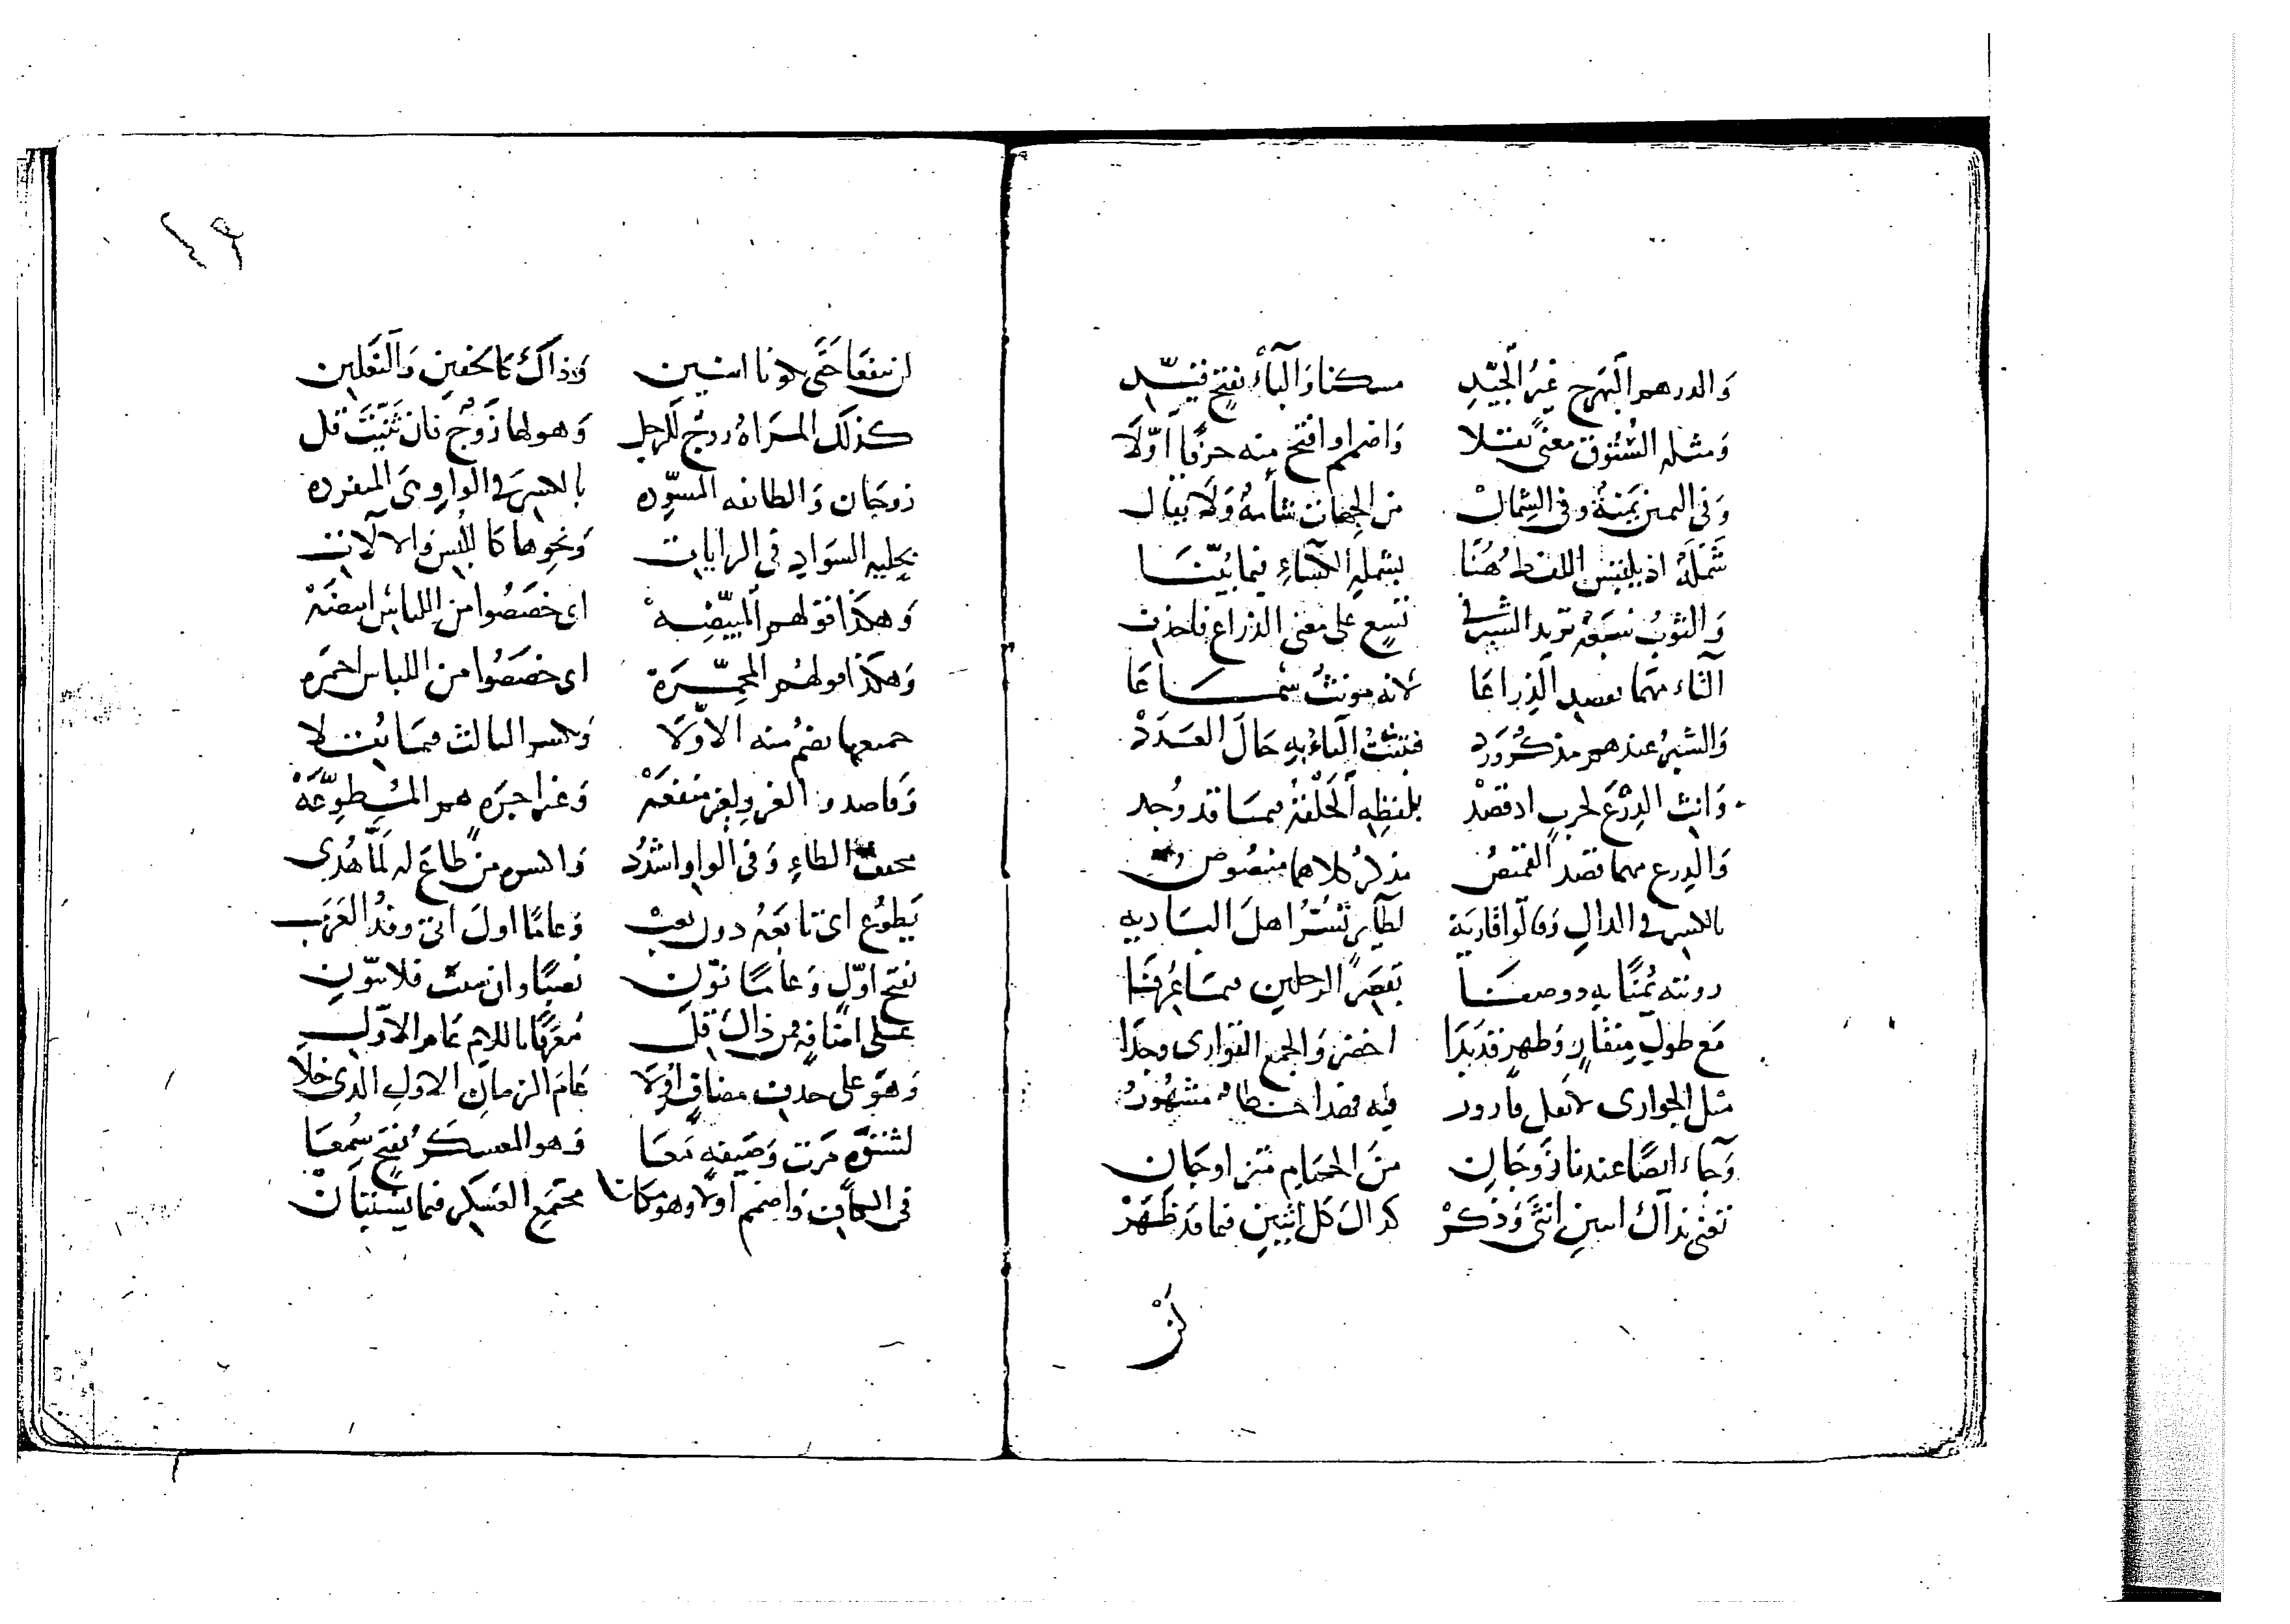 والدرهم البهرج غير الجيد مسكنا والباء بفتح قيد
ومثله الستوق معنى نقلا واضمم او افتح منه حرفا اولا
وفي اليمين يمنة وفي الشمال من الجهات شامة ولا يقال
شملة اذ يلتبس اللفظ هنا بشملة الكساء فيما بينا
والثوب سبعة تريد الشبر في تسع على معنى الذراع فاحذف
التاء مهما تقصد الذراعا لانه مونث سماعا
والشبر عندهم مذكر ورد فتثبت التاء به حال العدد
وانث الدرع لحرب اذ قصد بلفظه الحلقة مما قد وجد
والدرع مهما تقصد القميص مذكر كلاهما منصوص
بالكسر في الدال وقالوا قارية لطاير تسر اهل البادية
رويته تيمنا به ووصفنا بقصر الرجلين مما عرفنا
مع طول منقار وظهر قد بدا اخضر والجمع القواري وجدا
مثل الجواري لا تقل قارور فيه فهذا خطا مشهور
وجاء ايضا عندنا زوجان من الحمام متزاوجان
تعني بذاك اثنين انثى وذكر كذاك كل اثنين فيما قد ظهر
لن ينفعا حتى يكونا اثنين وذاك كالخفين والنعلين
كذلك المراة زوج للرجل وهو لها زوج فان ثنيت قل
زوجان والطائفة المسودة بالكسر في الواو وهي المفردة
بحلية السواد في الرايات ونحوها كاللبس والالات
وهكذا قولهم المبيضه اي خصصوا من اللباس ابيضه
وهكذا قولهم المحمرة اي خصصوا من اللباس احمره
جميعها تضم منه الاولا وتكسر الثالث فيما يتلا
وقاصدوا الغزو لغير منفعه وغير اجرة هم المطوعه
مخفف الطاء وفي الواو اشدد والكسر من طاع له لما هدي
يطوع اي تابعه دون تعب وعاما اول اتى وفد العرب
بفتح اول وعاما نون نصبا وان شئت فلا تنون
على اضافة فمن ذاك قل معرفا باللام عام الاول
وهو على حذف مضاف اولا عام الزمان الاول الذي خلا
لشتوة مرت وصيفة معا وهو المعسكر بفتح سمعا
في الكاف واضمم اولا وهو مكان مجتمع العسكر فيما يستبان